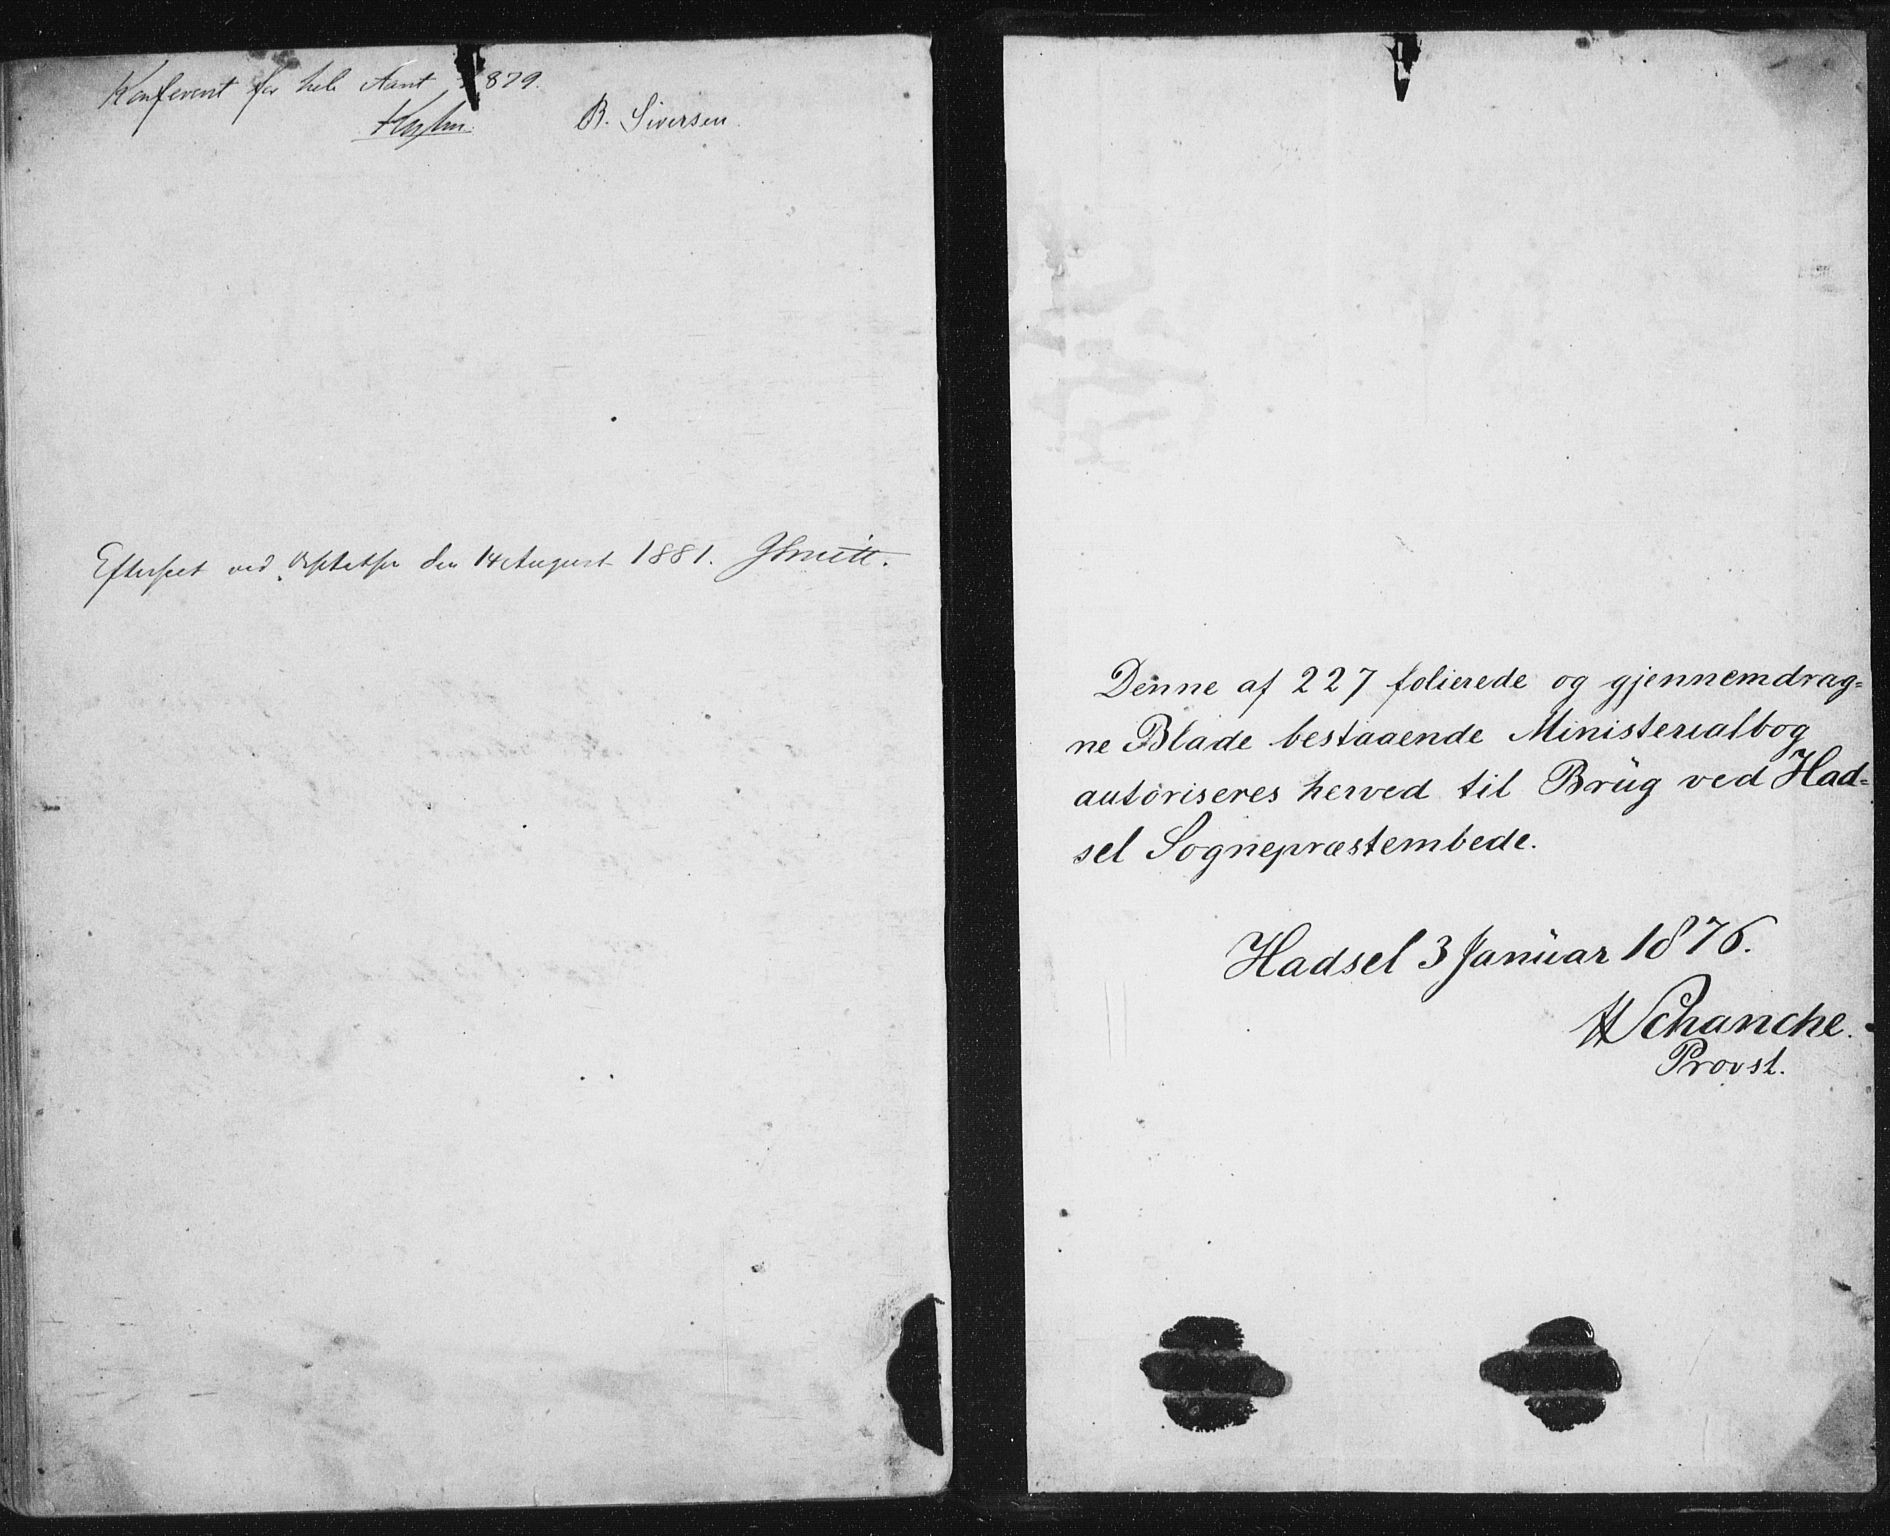 Konfereret for hele Aaret 1879.
B. Siversen.
Efterseet ved den 14 August 1881.
Denne af 227 folierede og gjennemdrag=
ne Blade bestaaende Ministerialbog
autoriseres herved til Brüg ved Had=
sel Sognepræstembede.
Hadsel 3 Januar 1876.
H Schanche.
Provst.